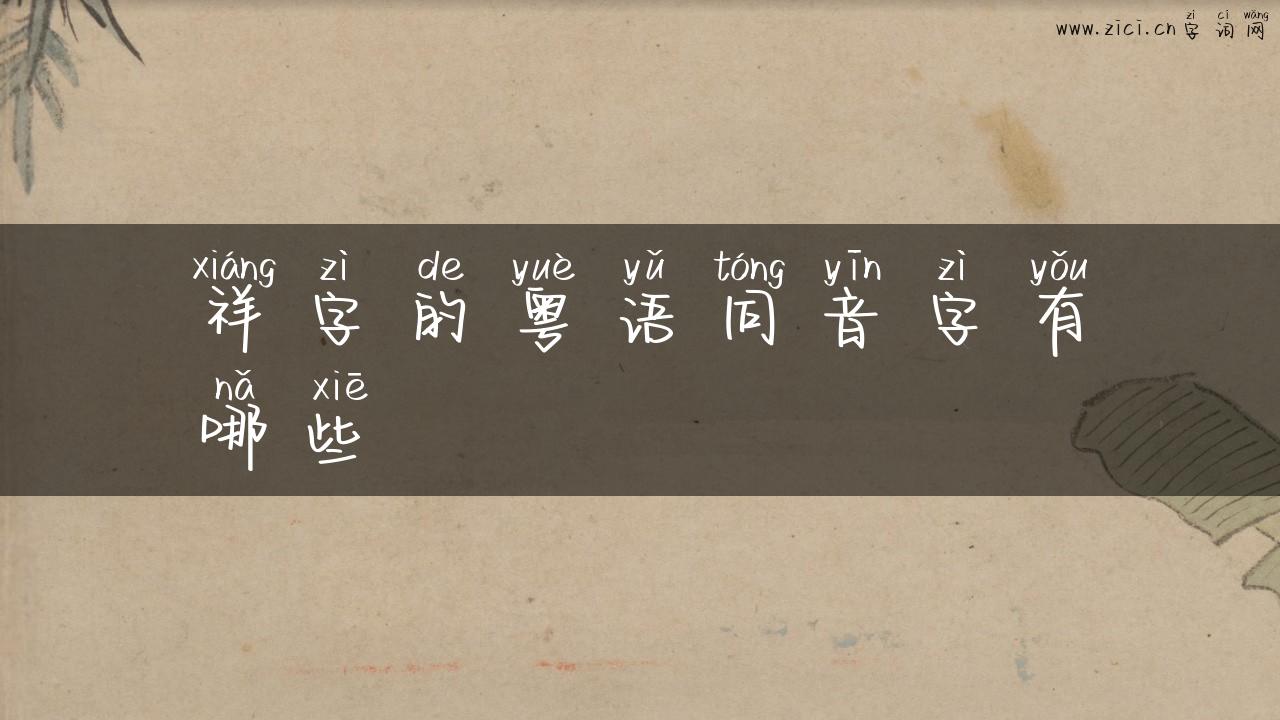 zì cí wǎng
www.zici.cn 字词网
xiáng zì de yuè yǔ tóng yīn zì yǒu
祥字的粤语同音字有
nǎ xiē
哪些